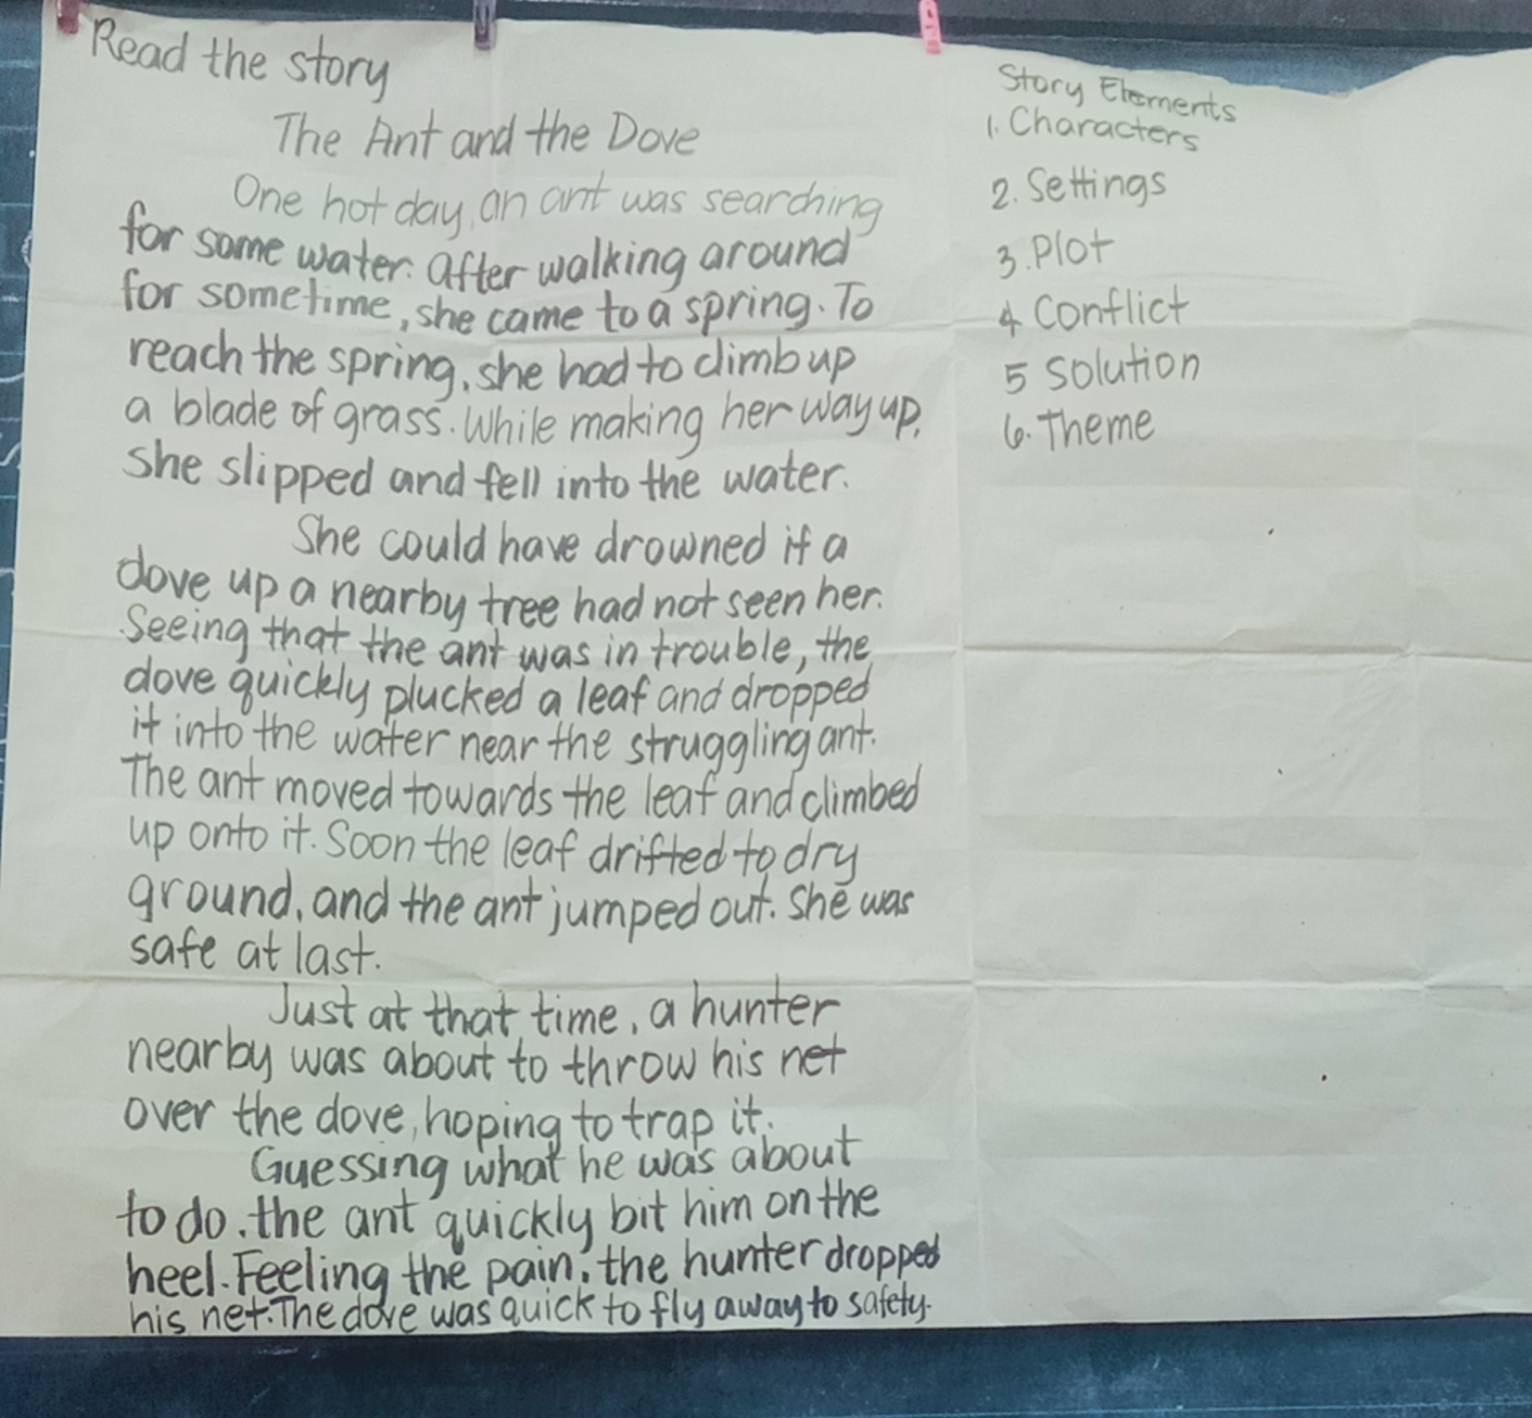 Read the story
The Ant and the Dove
One hot day, an ant was searching
for some water. After walking around
for sometime, she came to a spring. To
reach the spring, she had to climb up
a blade of grass. While making her way up,
she slipped and fell into the water.
She could have drowned if a
dove up a nearby tree had not seen her.
Seeing that the ant was in trouble, the
dove quickly plucked a leaf and dropped
it into the water near the struggling ant.
The ant moved towards the leaf and climbed
up onto it. Soon the leaf drifted to dry
ground, and the ant jumped out. She was
safe at last.
Just at that time, a hunter
nearby was about to throw his net
over the dove, hoping to trap it.
Guessing what he was about
to do, the ant quickly bit him on the
heel. Feeling the pain, the hunter dropped
his net. The dove was quick to fly away to safety.
Story Elements
1. Characters
2. Settings
3. Plot
4 Conflict
5 Solution
6. Theme